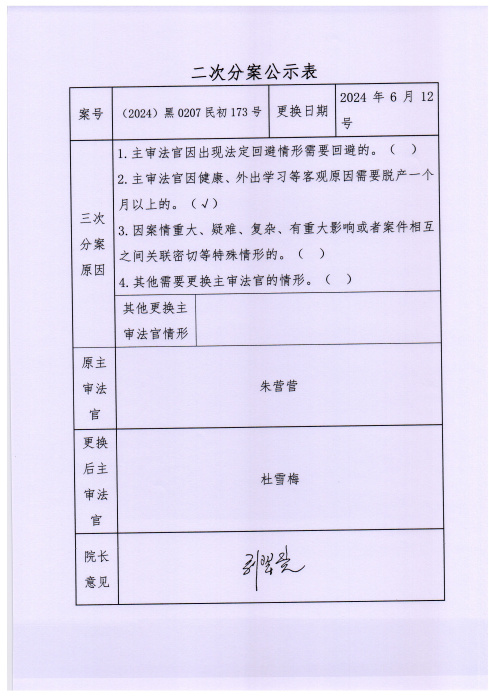 二次分案公示表
案号
（2024）黑 0207 民初 173 号
更换日期
2024 年 6 月 12
号
三次
分案
原因
1.主审法官因出现法定回避情形需要回避的。（ ）
2.主审法官因健康、外出学习等客观原因需要脱产一个
月以上的。（√）
3.因案情重大、疑难、复杂、有重大影响或者案件相互
之间关联密切等特殊情形的。（ ）
4.其他需要更换主审法官的情形。（ ）
其他更换主
审法官情形
原主
审法
官
朱营营
更换
后主
审法
官
杜雪梅
院长
意见